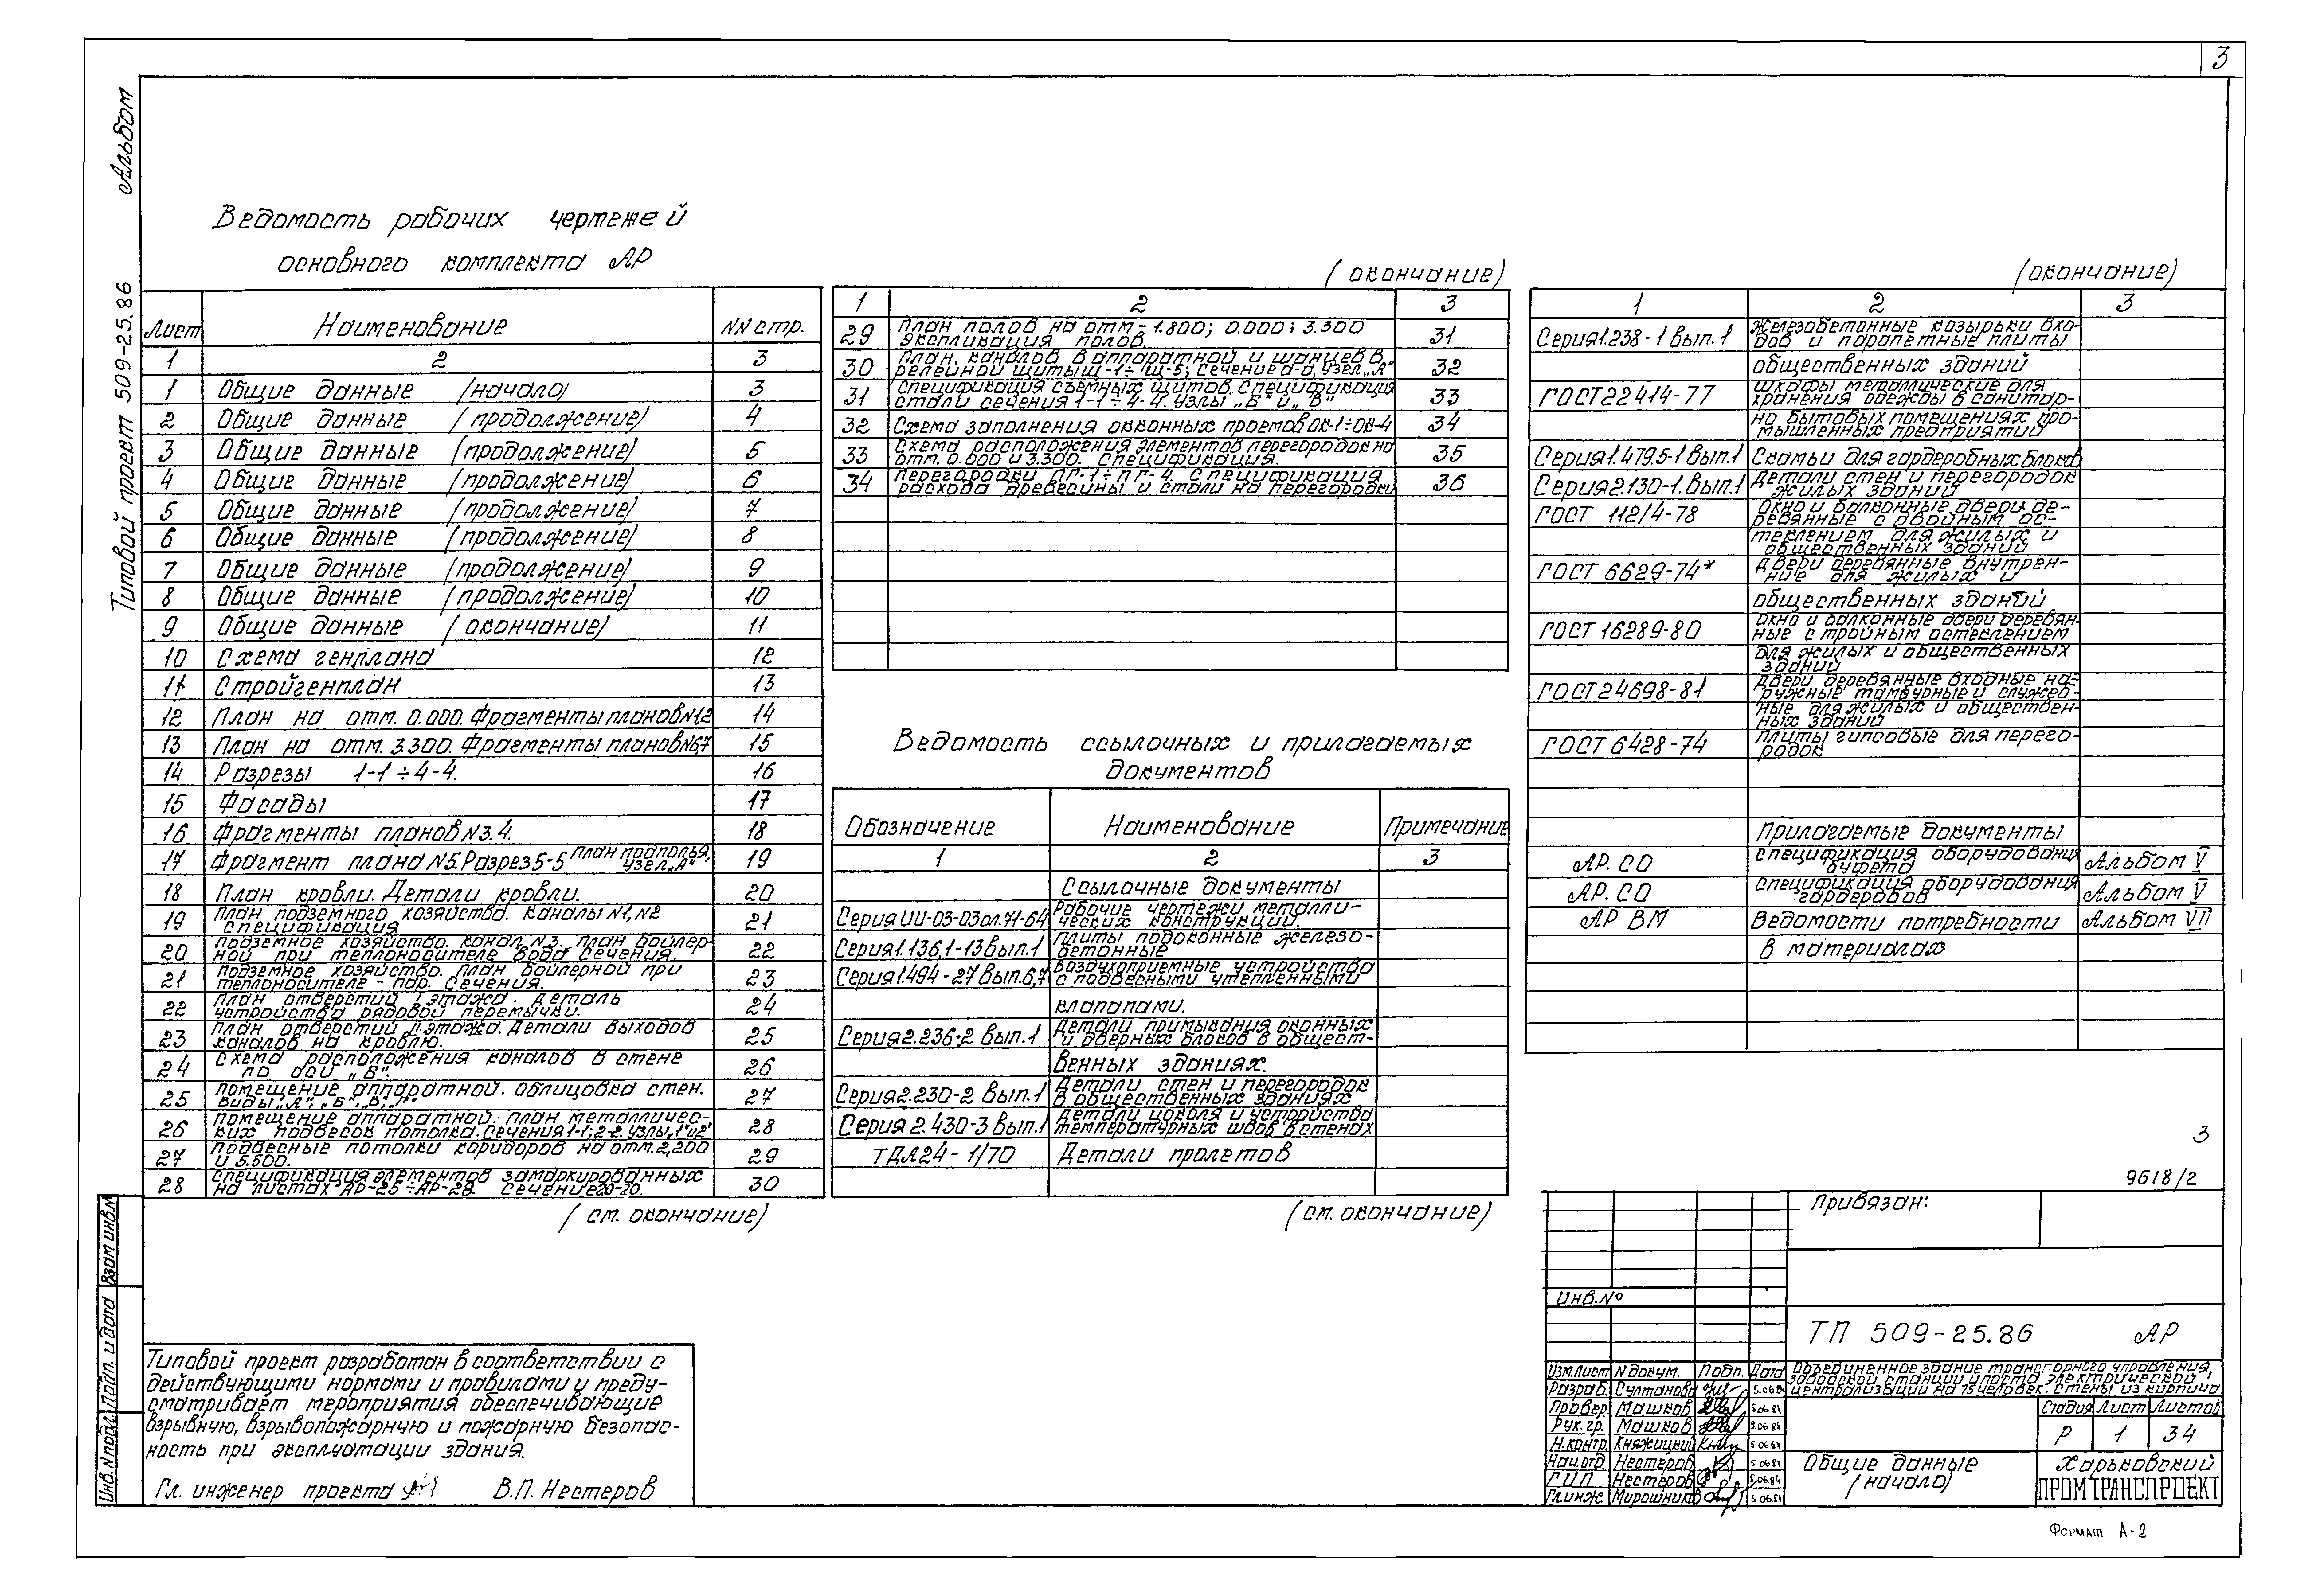 3
Альбом
Типовой проект 509-25.86
Ведомость рабочих чертежей
основного комплекта АР
Лист Наименование NN стр.
1 2 3
1 Общие данные (начало) 3
2 Общие данные (продолжение) 4
3 Общие данные (продолжение) 5
4 Общие данные (продолжение) 6
5 Общие данные (продолжение) 7
6 Общие данные (продолжение) 8
7 Общие данные (продолжение) 9
8 Общие данные (продолжение) 10
9 Общие данные (окончание) 11
10 Схема генплана 12
11 Стройгенплан 13
12 План на отм. 0.000. Фрагменты планов N1,2 14
13 План на отм. 3.300. Фрагменты планов N6,7 15
14 Разрезы 1-1÷4-4. 16
15 Фасады 17
16 Фрагменты планов N3.4. 18
17 Фрагмент плана N5. Разрез 5-5 План подполья, узел „А" 19
18 План кровли. Детали кровли. 20
19 План подземного хозяйства. Каналы N1, N2
Спецификация 21
20 Подземное хозяйство. Канал N3. План бойлер-
ной при теплоносителе вода. Сечения. 22
21 Подземное хозяйство. План бойлерной при
теплоносителе - пар. Сечения. 23
22 План отверстий I этажа. Деталь
устройства рядовой перемычки. 24
23 План отверстий II этажа. Детали выходов
каналов на кровлю. 25
24 Схема расположения каналов в стене
по оси „Б". 26
25 Помещение аппаратной. Облицовка стен.
Виды „А", „Б", „В", „Г" 27
26 Помещение аппаратной. План металличес-
ких подвесок потолка. Сечения 1-1, 2-2. Узлы „1" и „2" 28
27 Подвесные потолки коридоров на отм. 2,200
и 5.500. 29
28 Спецификация элементов замаркированных
на листах АР-25÷АР-28. Сечение 20-20. 30
(см. окончание)
(окончание)
1 2 3
29 План полов на отм - 1.800; 0.000; 3.300
Экспликация полов. 31
30 План. каналов в аппаратной и шанцев в
релейной щиты Щ-1÷Щ-5; Сечение а-а, узел „А" 32
31 Спецификация съемных щитов. Спецификация
стали сечения 1-1÷4-4. Узлы „Б" и „В" 33
32 Схема заполнения оконных проемов ОК-1÷ОК-4 34
33 Схема расположения элементов перегородок на
отм. 0.000 и 3.300. Спецификация. 35
34 Перегородки ПГ-1÷ПГ-4. Спецификация
расхода древесины и стали на перегородки 36
Ведомость ссылочных и прилагаемых
документов
Обозначение Наименование Примечание
1 2 3
Ссылочные документы
Серия ИИ-03-03 ал.71-64 Рабочие чертежи металли-
ческих конструкций.
Серия 1.136,1-13 вып.1 Плиты подоконные железо-
бетонные
Серия 1.494-27 вып.6,7 Воздухоприемные устройства
с подвесными утепленными
клапапами.
Серия 2.236-2 вып.1 Детали примыкания оконных
и дверных блоков в общест-
венных зданиях.
Серия 2.230-2 вып.1 Детали стен и перегородок
в общественных зданиях
Серия 2.430-3 вып.1 Детали цоколя и устройства
температурных швов в стенах
ТДА24-1/70 Детали пролетов
(см. окончание)
(окончание)
1 2 3
Серия 1.238-1 вып.1 Железобетонные козырьки вхо-
дов и парапетные плиты
общественных зданий
ГОСТ 22414-77 Шкафы металлические для
хранения одежды в санитар-
но бытовых помещениях про-
мышленных предприятий
Серия 1.479.5-1 вып.1 Скамьи для гардеробных блоков
Серия 2.130-1. вып.1 Детали стен и перегородок
жилых зданий
ГОСТ 11214-78 Окно и балконные двери де-
ревянные с двойным ос-
теклением для жилых и
общественных зданий
ГОСТ 6629-74* Двери деревянные внутрен-
ние для жилых и
общественных зданий
ГОСТ 16289-80 Окно и балконные двери деревян-
ные с тройным остеклением
для жилых и общественных
зданий
ГОСТ 24698-81 Двери деревянные входные на-
ружные тамбурные и служеб-
ные для жилых и обществен-
ных зданий
ГОСТ 6428-74 Плиты гипсовые для перего-
родок
Прилагаемые документы
АР. СО Спецификация оборудования
буфета Альбом V
АР. СО Спецификация оборудования
гардеробов Альбом V
АР ВМ Ведомости потребности Альбом VII
в материалах
3
9618/2
Привязан:
Инв.№
ТП 509-25.86 АР
Изм. Лист N докум. Подп. Дата
Объединенное здание транспортного управления,
заводской станции и поста электрической
централизации на 75 человек. Стены из кирпича
Разраб. Султанова 5.06.84
Провер. Машков 5.06.84
Рук. гр. Машков 5.06.84
Н. контр. Княжицкий 5.06.84
Нач. отд. Нестеров 5.06.84
ГИП Нестеров 5.06.84
Гл. инж. Мирошников 5.06.84
Стадия Лист Листов
Р 1 34
Общие данные
(начало)
Харьковский
ПРОМТРАНСПРОЕКТ
Формат А-2
Типовой проект разработан в соответствии с
действующими нормами и правилами и преду-
сматривает мероприятия обеспечивающие
взрывную, взрывопожарную и пожарную безопас-
ность при эксплуатации здания.
Гл. инженер проекта В.П. Нестеров
Взам инв.N
Подп. и дата
Инв. N подл.